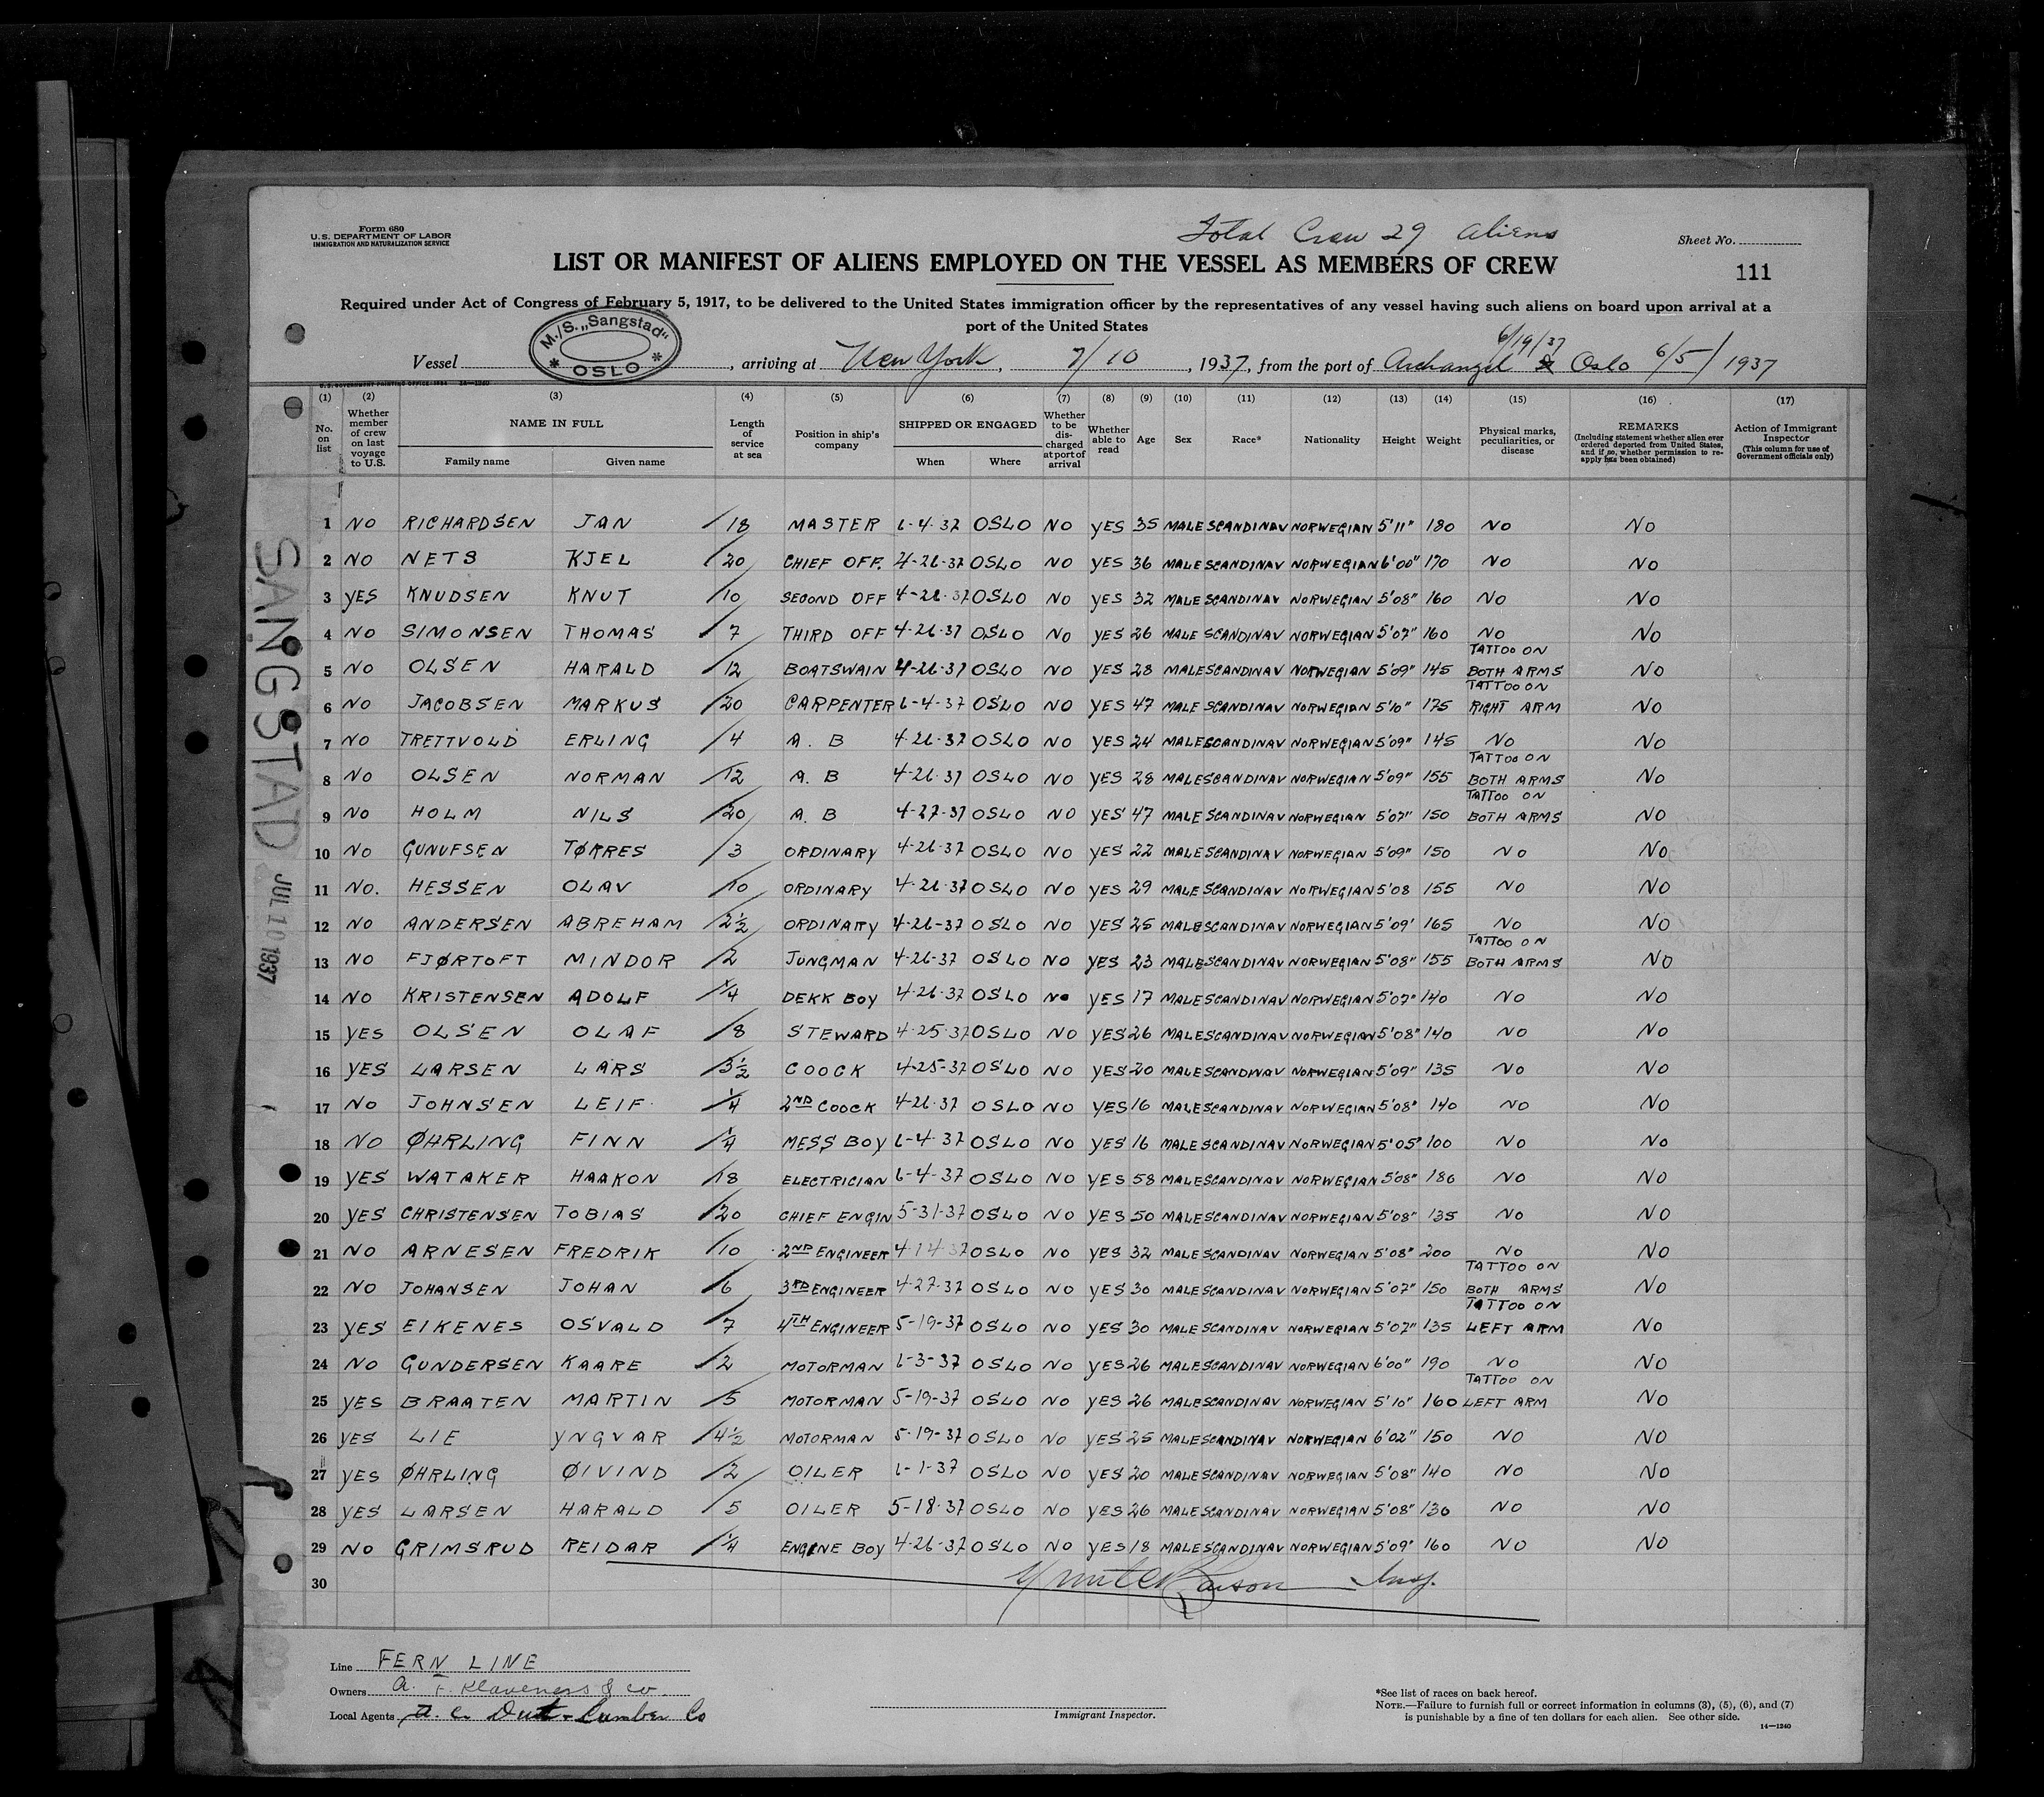 Form 680
U.S. DEPARTMENT OF LABOR
IMMIGRATION AND NATURALIZATION SERVICE
Total Crew 29 Aliens
Sheet No.
LIST OR MANIFEST OF ALIENS EMPLOYED ON THE VESSEL AS MEMBERS OF CREW
111
Required under Act of Congress of February 5, 1917, to be delivered to the United States immigration officer by the representatives of any vessel having such aliens on board upon arrival at a
port of the United States
6/19/37
Vessel M./S. „Sangstad" * OSLO *, arriving at New York, 7/10, 1937, from the port of Archangel & Oslo 6/5/1937
U.S. GOVERNMENT PRINTING OFFICE: 1934 14—1240
(1) No. on list (2) Whether member of crew on last voyage to U.S. (3) NAME IN FULL Family name Given name (4) Length of service at sea (5) Position in ship's company (6) SHIPPED OR ENGAGED When Where (7) Whether to be discharged at port of arrival (8) Whether able to read (9) Age (10) Sex (11) Race* (12) Nationality (13) Height (14) Weight (15) Physical marks, peculiarities, or disease (16) REMARKS (Including statement whether alien ever ordered deported from United States, and if so, whether permission to re-apply has been obtained) (17) Action of Immigrant Inspector (This column for use of Government officials only)
1 NO RICHARDSEN JAN 18 MASTER 6-4-37 OSLO NO YES 35 MALE SCANDINAV NORWEGIAN 5'11" 180 NO NO
2 NO NETS KJEL 20 CHIEF OFF. 4-26-37 OSLO NO YES 36 MALE SCANDINAV NORWEGIAN 6'00" 170 NO NO
3 YES KNUDSEN KNUT 10 SECOND OFF 4-26-37 OSLO NO YES 32 MALE SCANDINAV NORWEGIAN 5'08" 160 NO NO
4 NO SIMONSEN THOMAS 7 THIRD OFF 4-26-37 OSLO NO YES 26 MALE SCANDINAV NORWEGIAN 5'07" 160 NO NO
5 NO OLSEN HARALD 12 BOATSWAIN 4-26-37 OSLO NO YES 28 MALE SCANDINAV NORWEGIAN 5'09" 145 TATTOO ON BOTH ARMS NO
6 NO JACOBSEN MARKUS 20 CARPENTER 6-4-37 OSLO NO YES 47 MALE SCANDINAV NORWEGIAN 5'10" 175 TATTOO ON RIGHT ARM NO
7 NO TRETTVOLD ERLING 4 A. B 4-26-37 OSLO NO YES 24 MALE SCANDINAV NORWEGIAN 5'09" 145 NO NO
8 NO OLSEN NORMAN 12 A. B 4-26-37 OSLO NO YES 28 MALE SCANDINAV NORWEGIAN 5'09" 155 TATTOO ON BOTH ARMS NO
9 NO HOLM NILS 20 A. B 4-27-37 OSLO NO YES 47 MALE SCANDINAV NORWEGIAN 5'07" 150 TATTOO ON BOTH ARMS NO
10 NO GUNUFSEN TØRRES 3 ORDINARY 4-26-37 OSLO NO YES 22 MALE SCANDINAV NORWEGIAN 5'09" 150 NO NO
11 NO. HESSEN OLAV 10 ORDINARY 4-26-37 OSLO NO YES 29 MALE SCANDINAV NORWEGIAN 5'08 155 NO NO
12 NO ANDERSEN ABREHAM 2½ ORDINARY 4-26-37 OSLO NO YES 25 MALE SCANDINAV NORWEGIAN 5'09' 165 NO NO
13 NO FJØRTOFT MINDOR 2 JUNGMAN 4-26-37 OSLO NO YES 23 MALE SCANDINAV NORWEGIAN 5'08" 155 TATTOO ON BOTH ARMS NO
14 NO KRISTENSEN ADOLF ¼ DEKK BOY 4-26-37 OSLO NO YES 17 MALE SCANDINAV NORWEGIAN 5'07" 140 NO NO
15 YES OLSEN OLAF 8 STEWARD 4-25-37 OSLO NO YES 26 MALE SCANDINAV NORWEGIAN 5'08" 140 NO NO
16 YES LARSEN LARS 3½ COOCK 4-25-37 OSLO NO YES 20 MALE SCANDINAV NORWEGIAN 5'09" 135 NO NO
17 NO JOHNSEN LEIF ¼ 2ND COOCK 4-26-37 OSLO NO YES 16 MALE SCANDINAV NORWEGIAN 5'08" 140 NO NO
18 NO ØHRLING FINN ¼ MESS BOY 6-4-37 OSLO NO YES 16 MALE SCANDINAV NORWEGIAN 5'05" 100 NO NO
19 YES WATAKER HAAKON 18 ELECTRICIAN 6-4-37 OSLO NO YES 58 MALE SCANDINAV NORWEGIAN 5'08" 186 NO NO
20 YES CHRISTENSEN TOBIAS 20 CHIEF ENGIN 5-31-37 OSLO NO YES 50 MALE SCANDINAV NORWEGIAN 5'08" 135 NO NO
21 NO ARNESEN FREDRIK 10 2ND ENGINEER 4-14-37 OSLO NO YES 32 MALE SCANDINAV NORWEGIAN 5'08" 200 NO NO
22 NO JOHANSEN JOHAN 6 3RD ENGINEER 4-27-37 OSLO NO YES 30 MALE SCANDINAV NORWEGIAN 5'07" 150 TATTOO ON BOTH ARMS NO
23 YES EIKENES OSVALD 7 4TH ENGINEER 5-19-37 OSLO NO YES 30 MALE SCANDINAV NORWEGIAN 5'07" 135 TATTOO ON LEFT ARM NO
24 NO GUNDERSEN KAARE 2 MOTORMAN 6-3-37 OSLO NO YES 26 MALE SCANDINAV NORWEGIAN 6'00" 190 NO NO
25 YES BRAATEN MARTIN 5 MOTORMAN 5-19-37 OSLO NO YES 26 MALE SCANDINAV NORWEGIAN 5'10" 160 TATTOO ON LEFT ARM NO
26 YES LIE YNGVAR 4½ MOTORMAN 5-19-37 OSLO NO YES 25 MALE SCANDINAV NORWEGIAN 6'02" 150 NO NO
27 YES ØHRLING ØIVIND 2 OILER 6-1-37 OSLO NO YES 20 MALE SCANDINAV NORWEGIAN 5'08" 140 NO NO
28 YES LARSEN HARALD 5 OILER 5-18-37 OSLO NO YES 26 MALE SCANDINAV NORWEGIAN 5'08" 130 NO NO
29 NO GRIMSRUD REIDAR ¼ ENGINE BOY 4-26-37 OSLO NO YES 18 MALE SCANDINAV NORWEGIAN 5'09" 160 NO NO
30
Insp.
SANGSTAD JUL 10 1937
Line FERN LINE
Owners A. F. Klaveness & Co.
Local Agents A. C. Dutton Lumber Co
Immigrant Inspector.
*See list of races on back hereof.
NOTE.—Failure to furnish full or correct information in columns (3), (5), (6), and (7)
is punishable by a fine of ten dollars for each alien. See other side.
14—1240